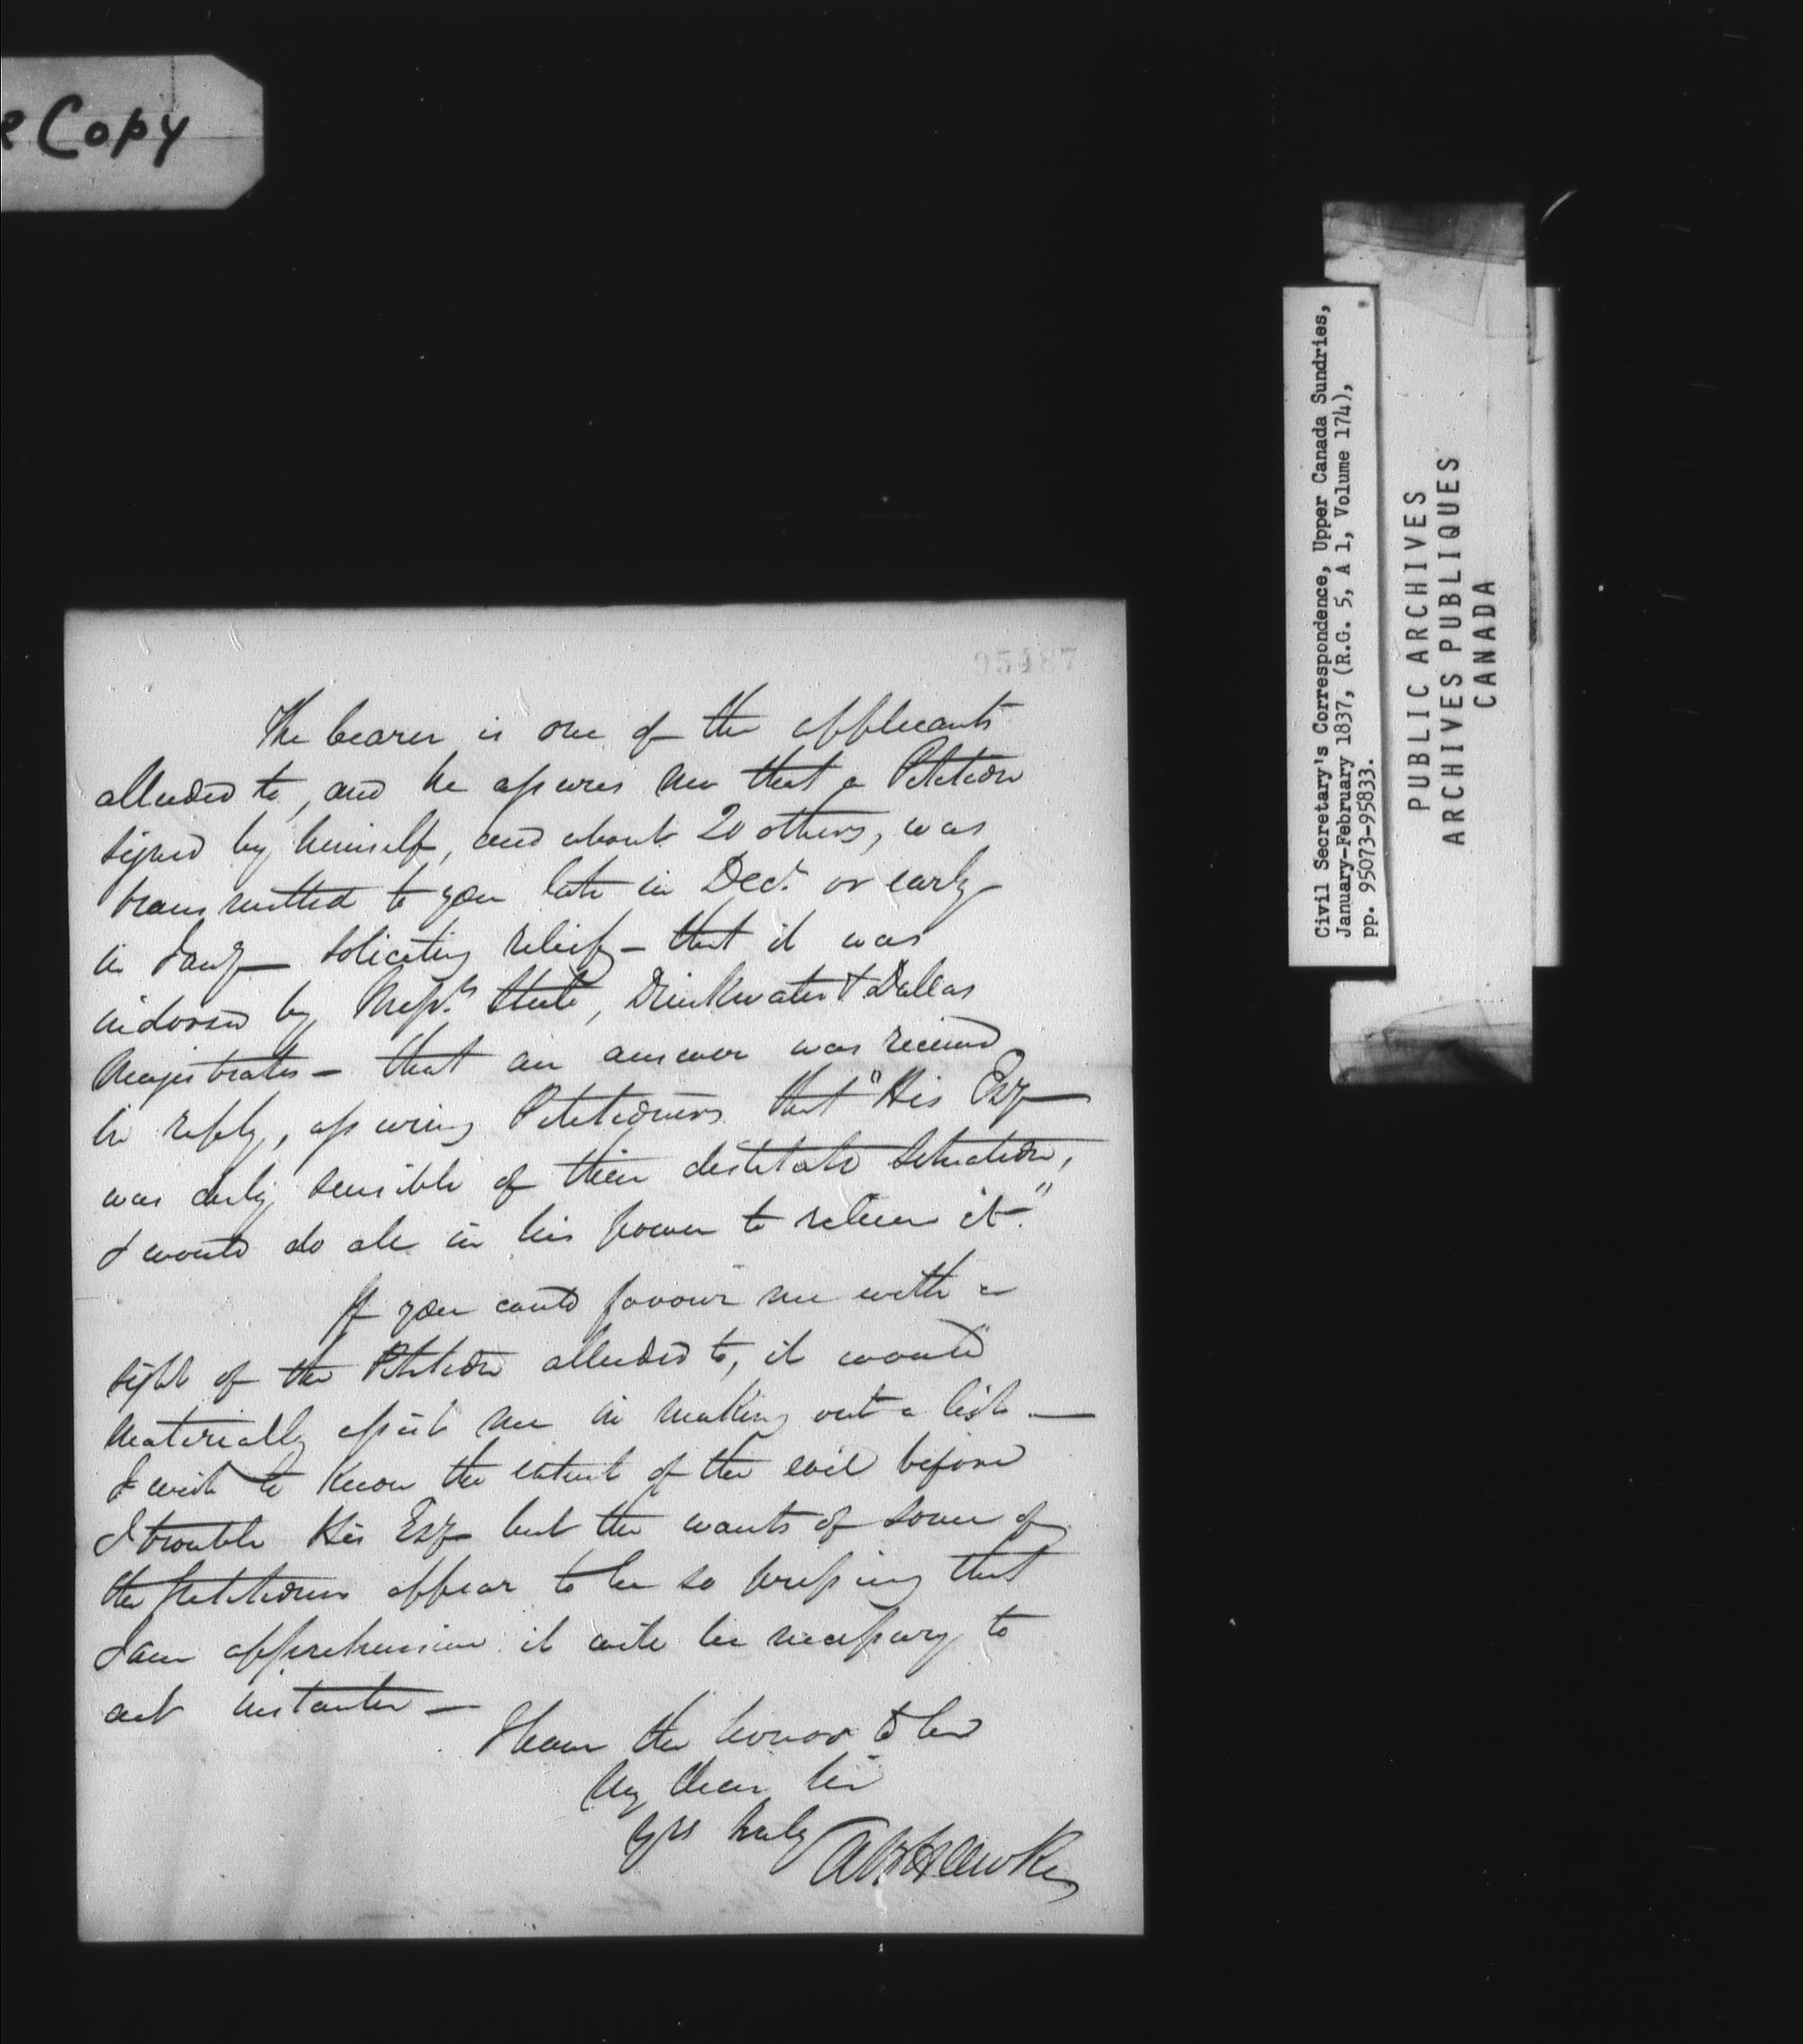 e Copy
95487
The bearer is one of the applicants
alluded to, and he assures me that a Petition
signed by himself, and about 20 others, was
transmitted to you late in Decr. or early
in Jany— soliciting relief— that it was
indorsed by Messrs. Steele, Drinkwater & Dallas
Magistrates— that an answer was received
in reply, assuring Petitioners that "His Exy—
was duly sensible of their destitute situation,
& would do all in his power to relieve it—."
If you could favour me with a
sight of the Petition alluded to, it would
materially assist me in making out a list.—
I wish to know the extent of the evil before
I trouble His Exy— but the wants of some of
the Petitioners appear to be so pressing that
I am apprehensive it will be necessary to
act instanter—
I have the honor to be
My dear Sir
Yrs truly
A B Hawke
Civil Secretary's Correspondence, Upper Canada Sundries,
January-February 1837, (R.G. 5, A 1, Volume 174),
pp. 95073-95833.
PUBLIC ARCHIVES
ARCHIVES PUBLIQUES
CANADA